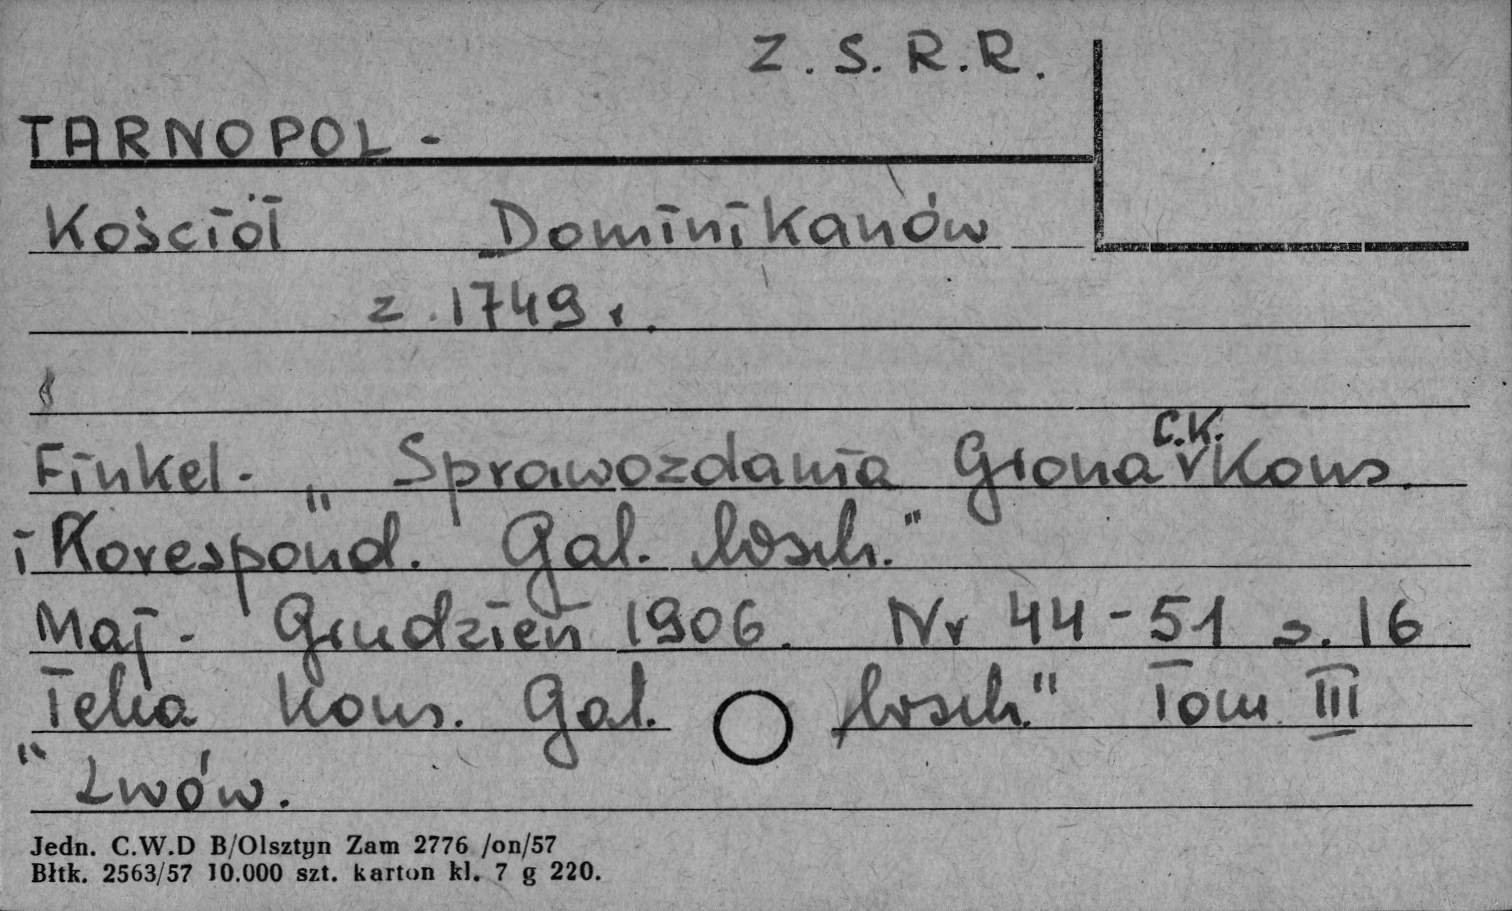 Z.S.R.R.
TARNOPOL -
Kościół Dominikanów
z 1749 r.
Finkel. „Sprawozdania Grona C.K. Kons.
i Korespond. Gal. wsch."
Maj - Grudzień 1906. Nr 44-51 s. 16
"Teka Kons. Gal. wsch." Tom III
Lwów.
Jedn. C.W.D B/Olsztyn Zam 2776 /on/57
Błtk. 2563/57 10.000 szt. karton kl. 7 g 220.